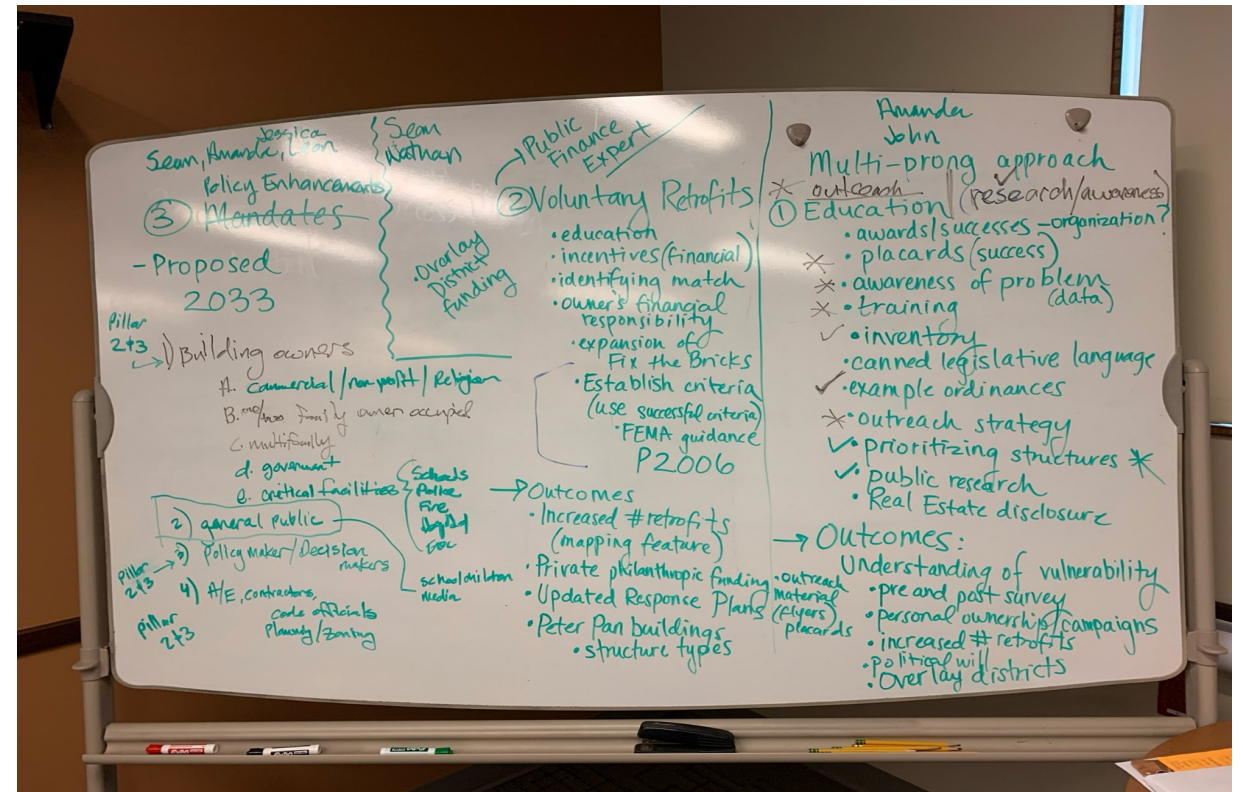 Jessica
Sean, Amanda, Leon
Policy Enhancements
③ Mandates
- Proposed
2033
Pillar
2+3
1) Building owners
A. commercial/nonprofit/Religion
B. one/two family owner occupied
C. multifamily
d. government
e. critical facilities
Schools
Police
Fire
EOC
2) general public
school children
media
Pillar
2+3
3) Policy maker/Decision
makers
Pillar
2+3
4) A/E, contractors,
code officials
Planning/Zoning
Sean
Nathan
• Overlay
District
funding
Public
Finance
Expert
② Voluntary Retrofits
• education
• incentives (financial)
• identifying match
• owner's financial
responsibility
• expansion of
Fix the Bricks
• Establish criteria
(use successful criteria)
• FEMA guidance
P2006
→ Outcomes
• Increased # retrofits
(mapping feature)
• Private philanthropic funding
• Updated Response Plans
• Peter Pan buildings
• structure types
• outreach
material
(flyers)
placards
Amanda
John
Multi-prong approach
* outreach (research/awareness)
① Education
• awards/successes - organization?
* • placards (success)
* • awareness of problem
(data)
* • training
✓ • inventory
• canned legislative language
✓ • example ordinances
* • outreach strategy
✓ • prioritizing structures *
✓ • public research
• Real Estate disclosure
→ Outcomes:
Understanding of vulnerability
• pre and post survey
• personal ownership/campaigns
• increased # retrofits
• political will
• Overlay districts